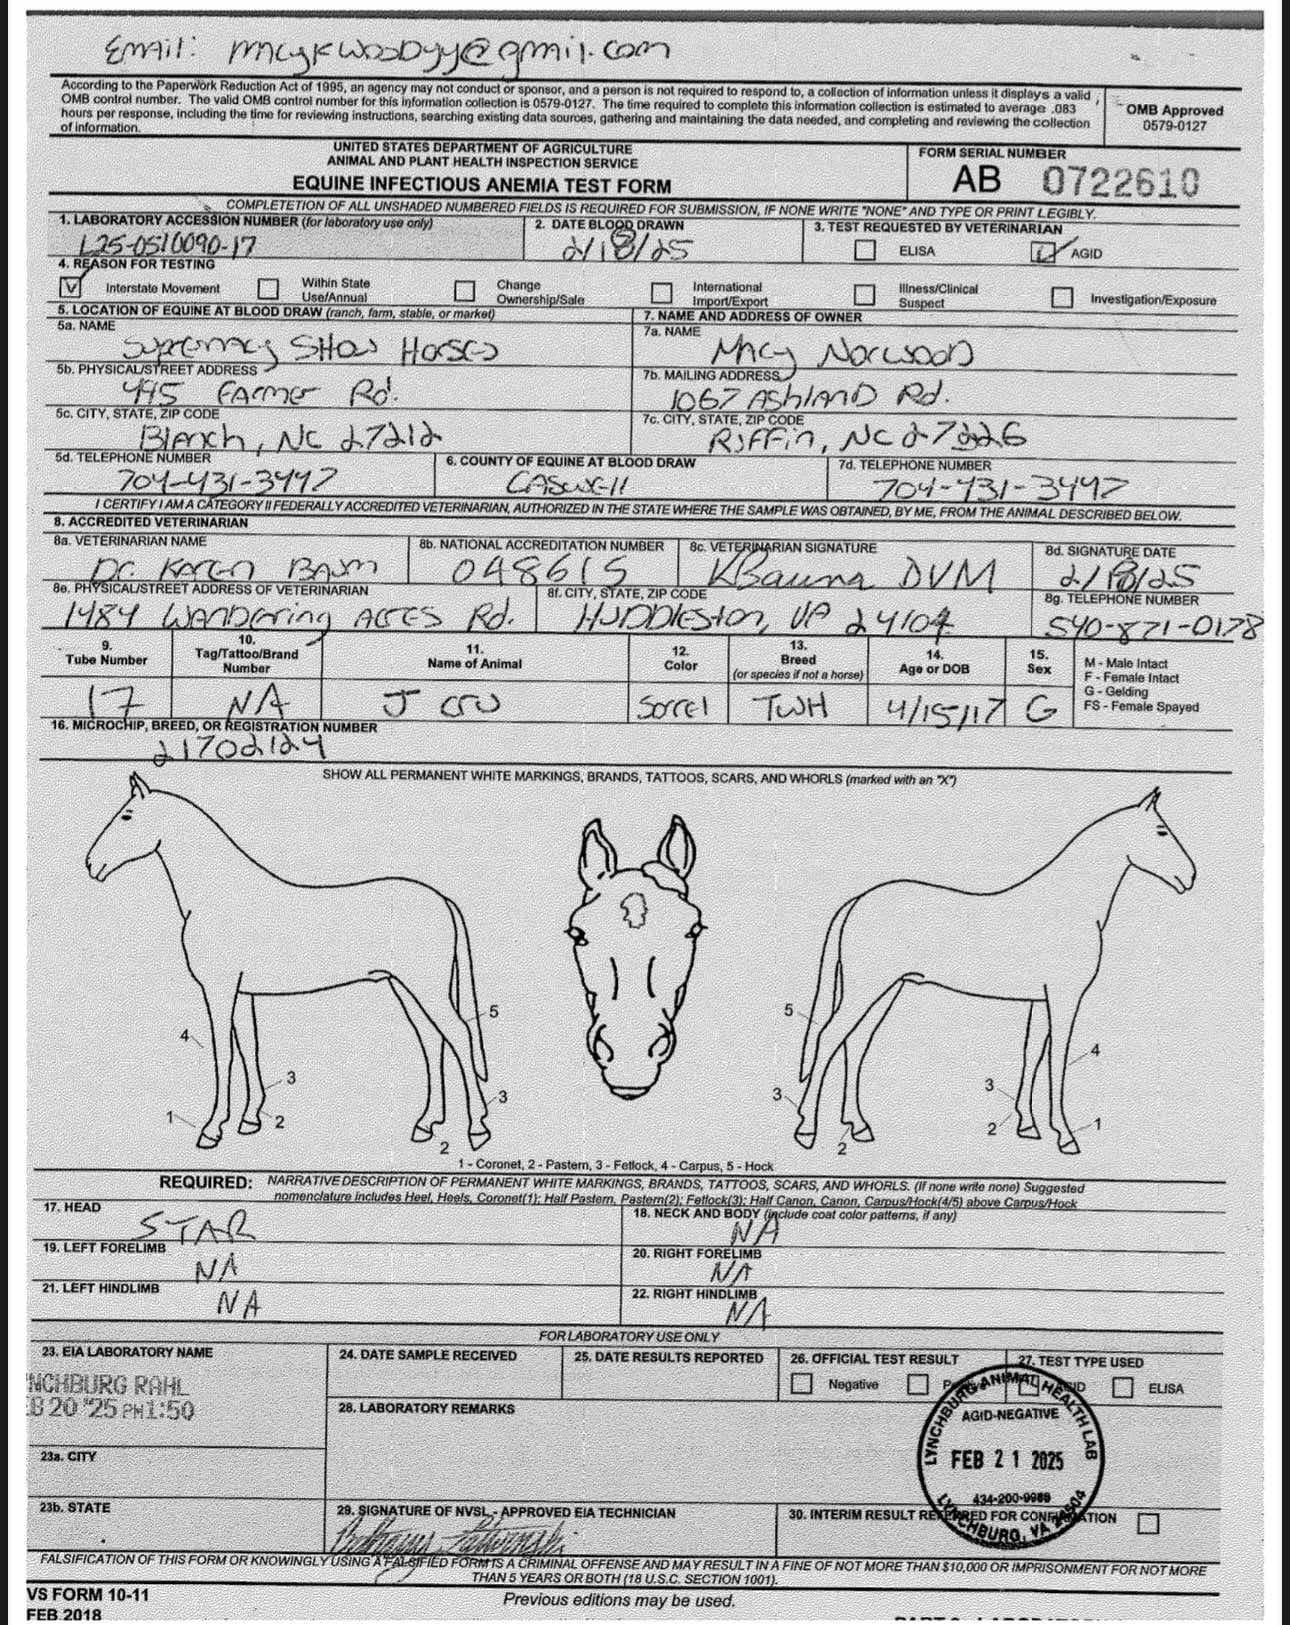 Email: macykwoodyy@gmail.com
According to the Paperwork Reduction Act of 1995, an agency may not conduct or sponsor, and a person is not required to respond to, a collection of information unless it displays a valid
OMB control number. The valid OMB control number for this information collection is 0579-0127. The time required to complete this information collection is estimated to average .083
hours per response, including the time for reviewing instructions, searching existing data sources, gathering and maintaining the data needed, and completing and reviewing the collection
of information.
OMB Approved
0579-0127
UNITED STATES DEPARTMENT OF AGRICULTURE
ANIMAL AND PLANT HEALTH INSPECTION SERVICE
EQUINE INFECTIOUS ANEMIA TEST FORM
FORM SERIAL NUMBER
AB 0722610
COMPLETETION OF ALL UNSHADED NUMBERED FIELDS IS REQUIRED FOR SUBMISSION, IF NONE WRITE "NONE" AND TYPE OR PRINT LEGIBLY.
1. LABORATORY ACCESSION NUMBER (for laboratory use only)
L25-0510090-17
2. DATE BLOOD DRAWN
2/18/25
3. TEST REQUESTED BY VETERINARIAN
ELISA
AGID
4. REASON FOR TESTING
Interstate Movement
Within State
Use/Annual
Change
Ownership/Sale
International
Import/Export
Illness/Clinical
Suspect
Investigation/Exposure
5. LOCATION OF EQUINE AT BLOOD DRAW (ranch, farm, stable, or market)
7. NAME AND ADDRESS OF OWNER
5a. NAME
Supremacy Show Horses
7a. NAME
Macy Norwood
5b. PHYSICAL/STREET ADDRESS
495 Farmer Rd.
7b. MAILING ADDRESS
1067 Ashland Rd.
5c. CITY, STATE, ZIP CODE
Blanch, NC 27212
7c. CITY, STATE, ZIP CODE
Ruffin, NC 27326
5d. TELEPHONE NUMBER
704-431-3447
6. COUNTY OF EQUINE AT BLOOD DRAW
Caswell
7d. TELEPHONE NUMBER
704-431-3447
I CERTIFY I AM A CATEGORY II FEDERALLY ACCREDITED VETERINARIAN, AUTHORIZED IN THE STATE WHERE THE SAMPLE WAS OBTAINED, BY ME, FROM THE ANIMAL DESCRIBED BELOW.
8. ACCREDITED VETERINARIAN
8a. VETERINARIAN NAME
Dr. Karen Baum
8b. NATIONAL ACCREDITATION NUMBER
048615
8c. VETERINARIAN SIGNATURE
KBaum DVM
8d. SIGNATURE DATE
2/18/25
8e. PHYSICAL/STREET ADDRESS OF VETERINARIAN
1484 Wandering Acres Rd.
8f. CITY, STATE, ZIP CODE
Huddleston, VA 24104
8g. TELEPHONE NUMBER
540-871-0178
9.
Tube Number
10.
Tag/Tattoo/Brand
Number
11.
Name of Animal
12.
Color
13.
Breed
(or species if not a horse)
14.
Age or DOB
15.
Sex
M - Male Intact
F - Female Intact
G - Gelding
FS - Female Spayed
17
NA
J Cru
Sorrel
TWH
4/15/17
G
16. MICROCHIP, BREED, OR REGISTRATION NUMBER
21702124
SHOW ALL PERMANENT WHITE MARKINGS, BRANDS, TATTOOS, SCARS, AND WHORLS (marked with an "X")
5 5
4 4
3 3
1 2 3 2 3 2 2 1
1 - Coronet, 2 - Pastern, 3 - Fetlock, 4 - Carpus, 5 - Hock
REQUIRED: NARRATIVE DESCRIPTION OF PERMANENT WHITE MARKINGS, BRANDS, TATTOOS, SCARS, AND WHORLS. (If none write none) Suggested
nomenclature includes Heel, Heels, Coronet(1); Half Pastern, Pastern(2); Fetlock(3); Half Canon, Canon, Carpus/Hock(4/5) above Carpus/Hock
17. HEAD
STAR
18. NECK AND BODY (include coat color patterns, if any)
NA
19. LEFT FORELIMB
NA
20. RIGHT FORELIMB
NA
21. LEFT HINDLIMB
NA
22. RIGHT HINDLIMB
NA
FOR LABORATORY USE ONLY
23. EIA LABORATORY NAME
NCHBURG RAHL
B 20 '25 PM 1:50
24. DATE SAMPLE RECEIVED
25. DATE RESULTS REPORTED
26. OFFICIAL TEST RESULT
Negative
27. TEST TYPE USED
ELISA
28. LABORATORY REMARKS
LYNCHBURG ANIMAL HEALTH LAB
AGID-NEGATIVE
FEB 21 2025
434-200-9988
LYNCHBURG, VA 24504
23a. CITY
23b. STATE
29. SIGNATURE OF NVSL - APPROVED EIA TECHNICIAN
30. INTERIM RESULT REFERRED FOR CONFIRMATION
FALSIFICATION OF THIS FORM OR KNOWINGLY USING A FALSIFIED FORM IS A CRIMINAL OFFENSE AND MAY RESULT IN A FINE OF NOT MORE THAN $10,000 OR IMPRISONMENT FOR NOT MORE
THAN 5 YEARS OR BOTH (18 U.S.C. SECTION 1001).
VS FORM 10-11
FEB 2018
Previous editions may be used.